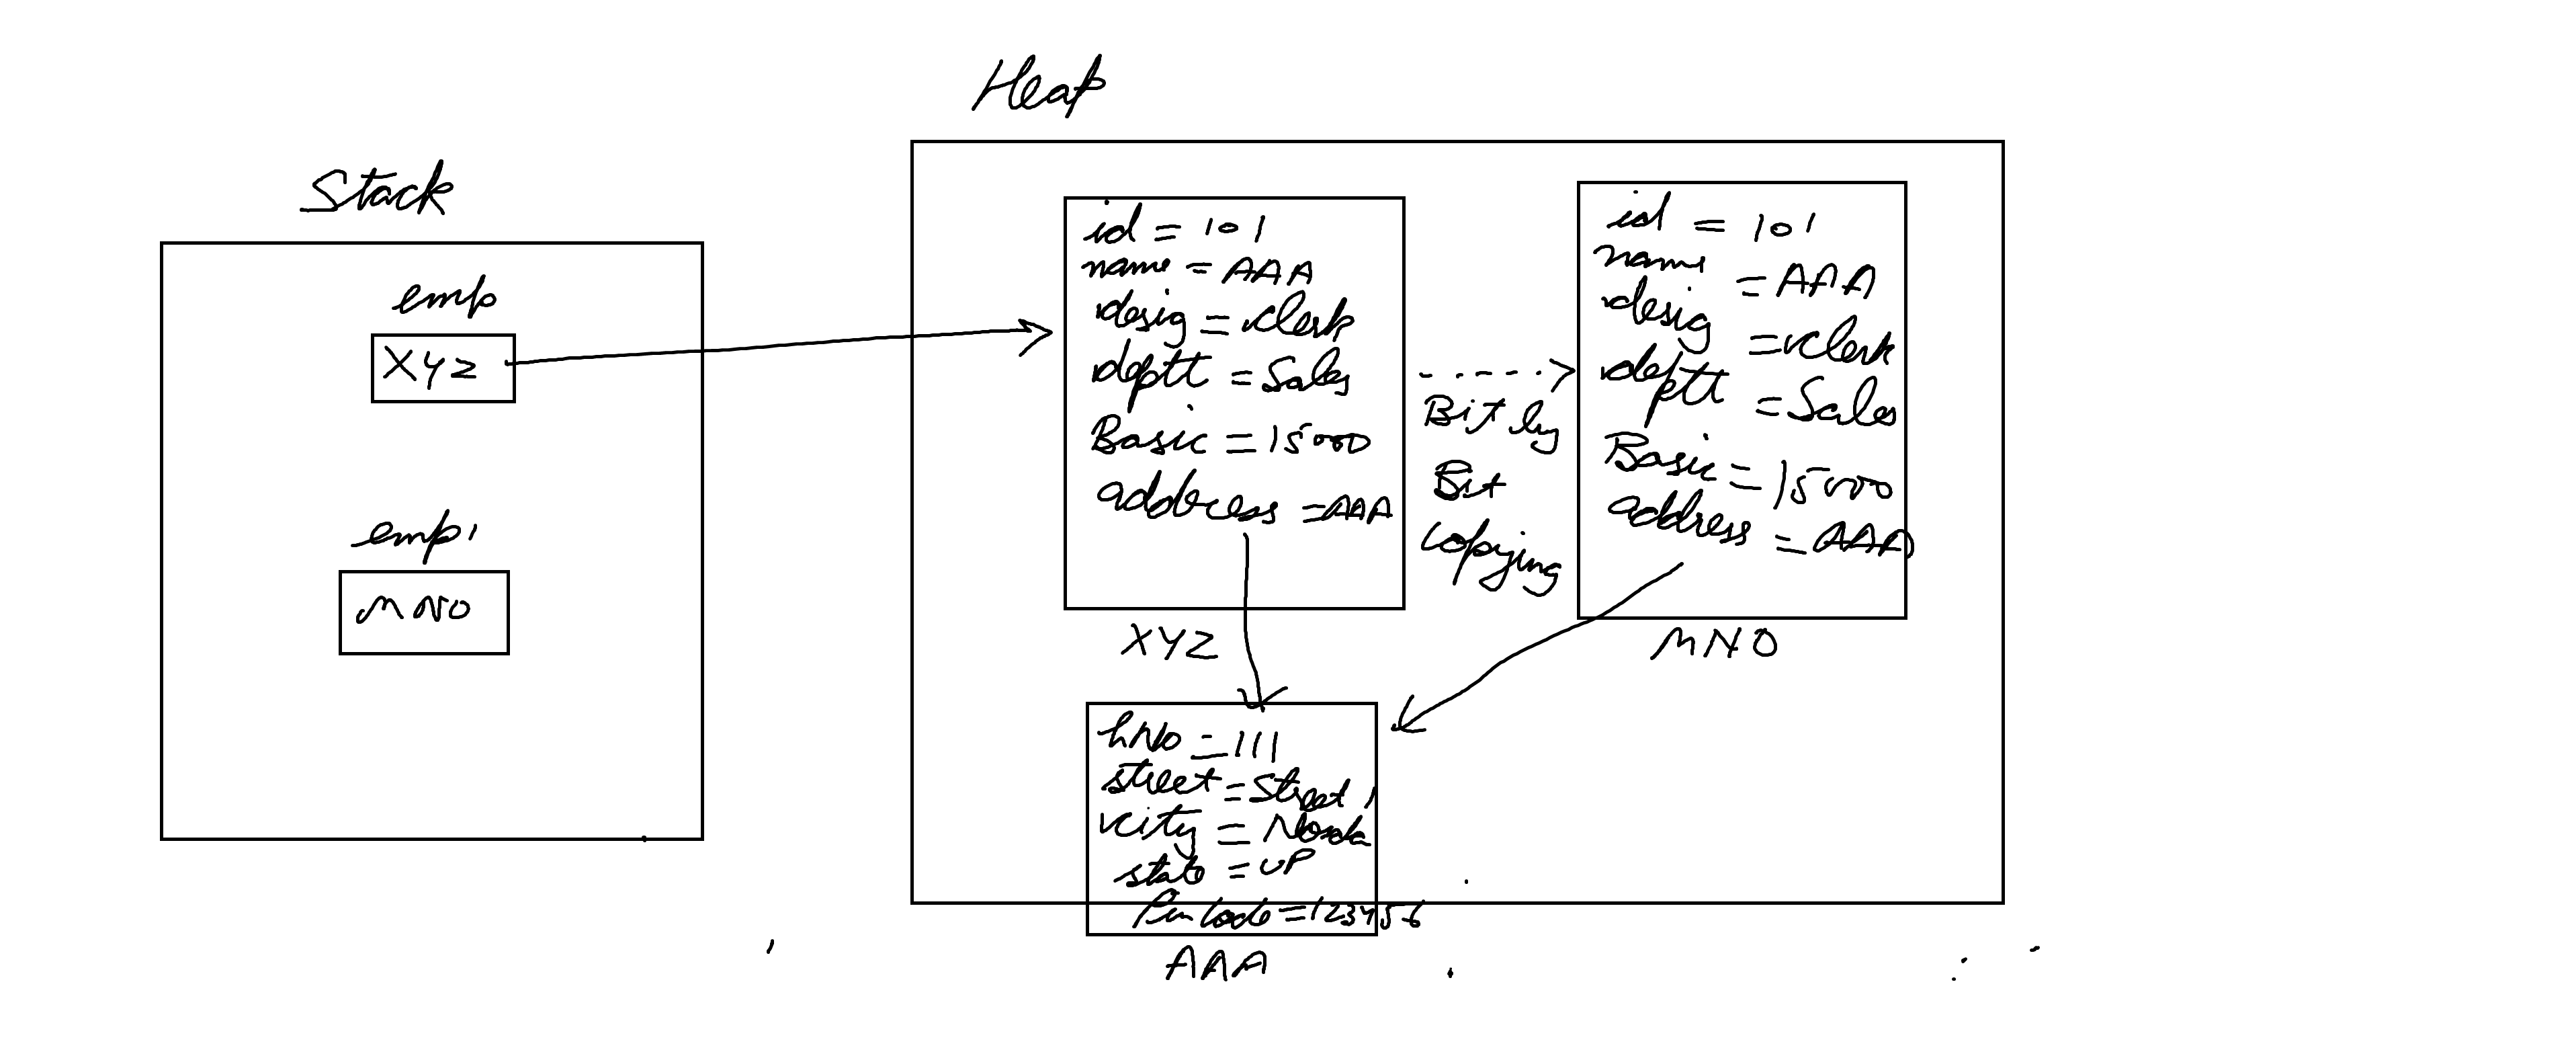 Heap
Stack
emp
XYZ
emp1
MNO
id = 101
name = AAA
desig = clerk
deptt = Sales
Basic = 15000
address = AAA
XYZ
Bit by
Bit
Copying
id = 101
name = AAA
desig = clerk
deptt = Sales
Basic = 15000
address = AAA
MNO
hNo = 111
street = Street 1
city = Noida
state = UP
Pin Code = 123456
AAA